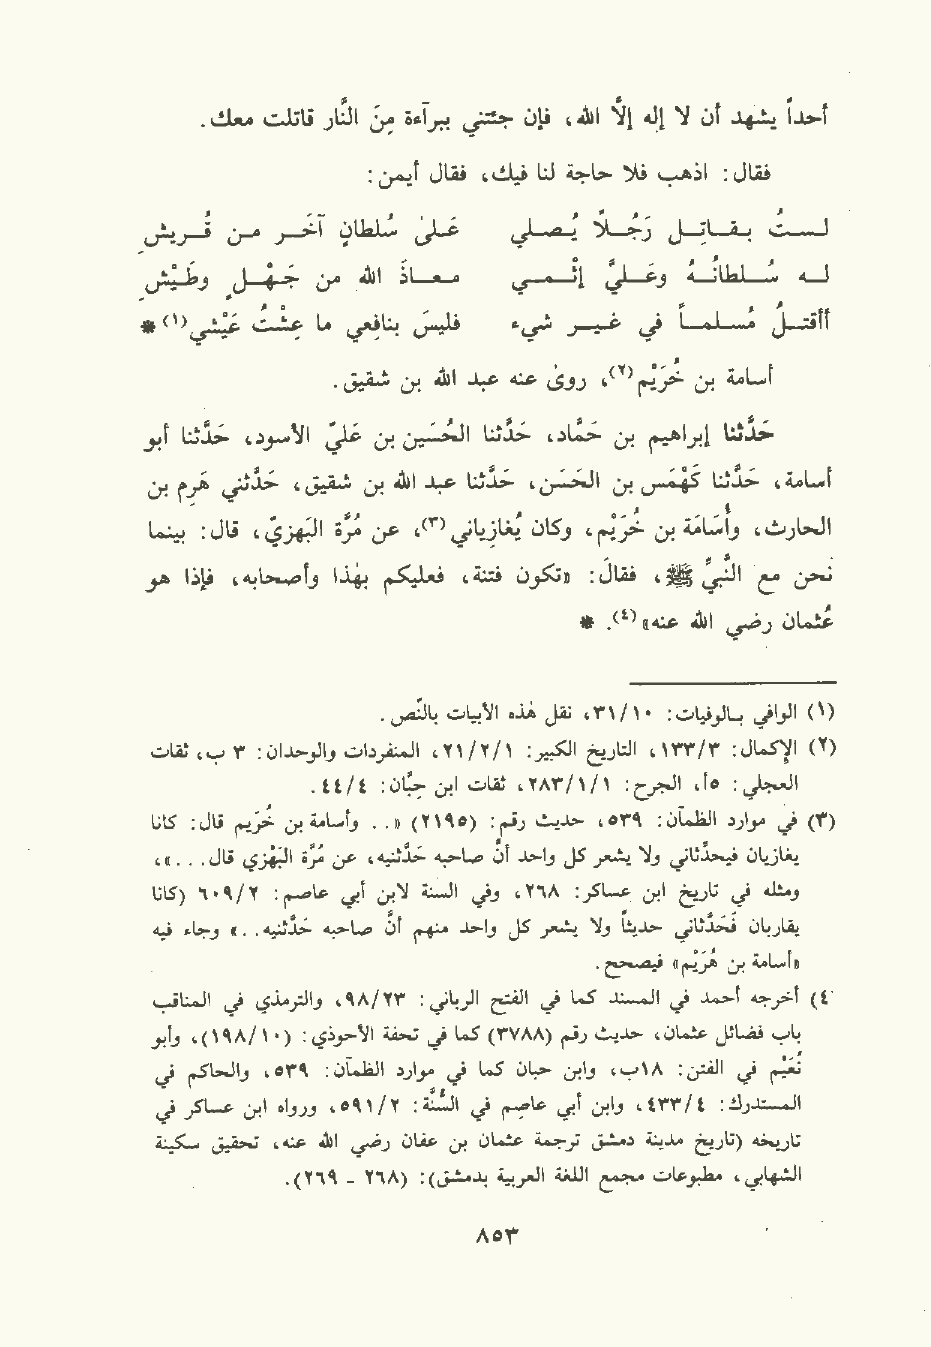 أحداً يشهد أن لا إله إلّا الله، فإن جئتني ببرآءة مِنَ النَّار قاتلت معك.
فقال: اذهب فلا حاجة لنا فيك، فقال أيمن:
لستُ بقاتِل رَجُلاً يُصلي    عَلىٰ سُلطانٍ آخَر من قُريشٍ
له سُلطانُه وعليَّ إثْمي    معاذَ الله من جَهْلٍ وطَيْشٍ
أأقتلُ مُسلماً في غير شيء    فليسَ بنافِعي ما عِشْتُ عَيْشي(١) *
أسامة بن خُرَيْم(٢)، روىٰ عنه عبد الله بن شقيق.
حَدَّثنا إبراهيم بن حَمَّاد، حَدَّثنا الحُسَين بن عَليّ الأسود، حَدَّثنا أبو
أسامة، حَدَّثنا كَهْمَس بن الحَسَن، حَدَّثنا عبد الله بن شقيق، حَدَّثني هَرِم بن
الحارث، وأُسَامَة بن خُرَيْم، وكان يُغازِياني(٣)، عن مُرَّة البَهزيّ، قال: بينما
نحن مع النَّبيِّ ﷺ، فقالَ: «تكون فتنة، فعليكم بهٰذا وأصحابه، فإذا هو
عُثمان رضي الله عنه»(٤). *
(١) الوافي بالوفيات: ٣١/١٠، نقل هٰذه الأبيات بالنَّص.
(٢) الإكمال: ١٣٣/٣، التاريخ الكبير: ٢١/٢/١، المنفردات والوالحدان: ٣ ب، ثقات
العجلي: ٥أ، الجرح: ٢٨٣/١/١، ثقات ابن حِبَّان: ٤٤/٤.
(٣) في موارد الظمآن: ٥٣٩، حديث رقم: (٢١٩٥) «.. وأسامة بن خُرَيم قال: كانا
يغازيان فيحدّثاني ولا يشعر كل واحد أنّ صاحبه حَدَّثنيه، عن مُرَّة البَهْزي قال...»،
ومثله في تاريخ ابن عساكر: ٢٦٨، وفي السنة لابن أبي عاصم: ٦٠٩/٢ (كانا
يقاربان فَحَدَّثاني حديثاً ولا يشعر كل واحد منهم أنّ صاحبه حَدَّثنيه..» وجاء فيه
«أسامة بن هُرَيْم» فيصحح.
٤) أخرجه أحمد في المسند كما في الفتح الرباني: ٩٨/٢٣، والترمذي في المناقب
باب فضائل عثمان، حديث رقم (٣٧٨٨) كما في تحفة الأحوذي: (١٩٨/١٠)، وأبو
نُعَيْم في الفتن: ١٨ب، وابن حبان كما في موارد الظمآن: ٥٣٩، والحاكم في
المستدرك: ٤٣٣/٤، وابن أبي عاصم في السُّنَّة: ٥٩١/٢، ورواه ابن عساكر في
تاريخه (تاريخ مدينة دمشق ترجمة عثمان بن عفان رضي الله عنه، تحقيق سكينة
الشهابي، مطبوعات مجمع اللغة العربية بدمشق): (٢٦٨ - ٢٦٩).
٨٥٣